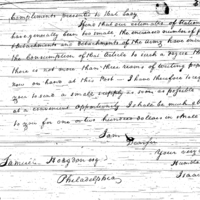 Compliments presented to that Lady
Hope that our estimates of Stationary
have generally been too small. The increased number of p
detachments and detachments of the Army have en
the consumption of this Article to such a degree th
there is not more than three reams of writing pa
now on hand at this Post — I have therefore to req
you to send a small supply as soon as possible
at a convenient opportunity I shall be much obl
to you for one or two hundred dollars in small
I am
Your
Humble
Isaac
Samuel Hodgdon esq
Philadelphia